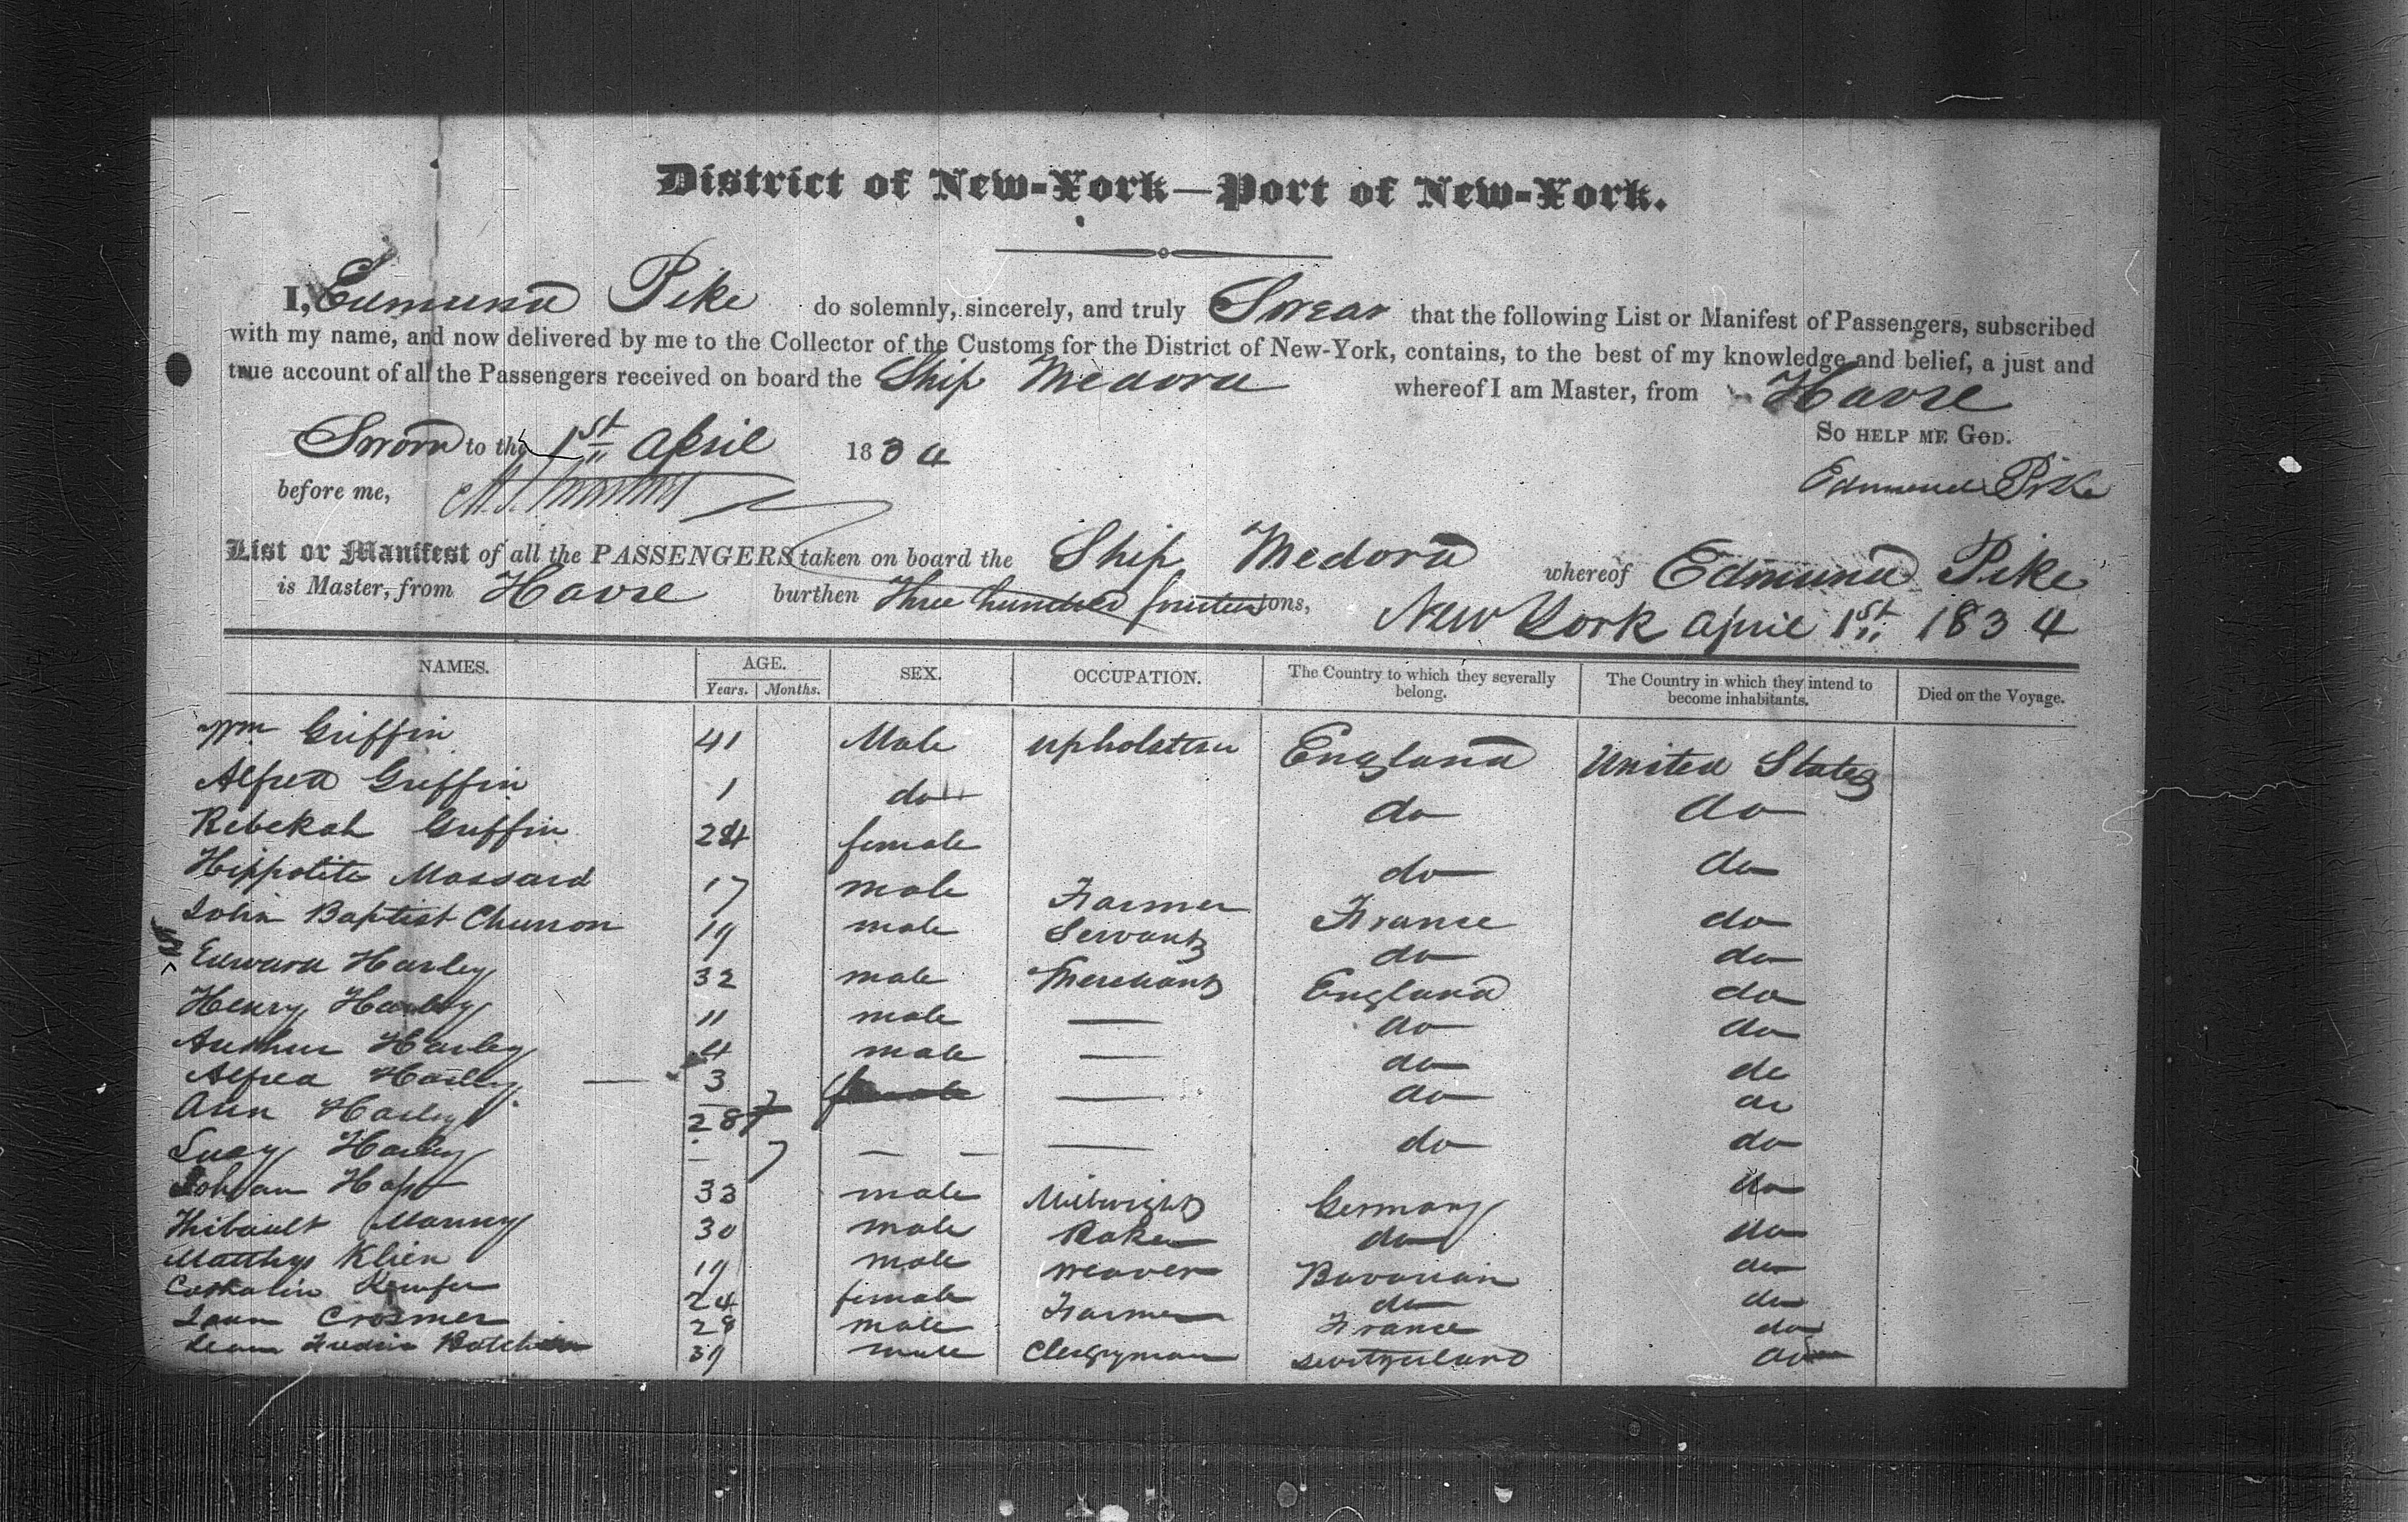 District of New-York—Port of New-York.
I, Edmund Pike do solemnly, sincerely, and truly Swear that the following List or Manifest of Passengers, subscribed
with my name, and now delivered by me to the Collector of the Customs for the District of New-York, contains, to the best of my knowledge and belief, a just and
true account of all the Passengers received on board the Ship Medora whereof I am Master, from Havre
So help me God.
Sworn to the 1st April 1834
Edmund Pike
before me,
List or Manifest of all the PASSENGERS taken on board the Ship Medora whereof Edmund Pike
is Master, from Havre burthen Three hundred fourteen tons, New York April 1st 1834
NAMES. AGE. Years. Months. SEX. OCCUPATION. The Country to which they severally belong. The Country in which they intend to become inhabitants. Died on the Voyage.
Wm Griffin 41 Male upholsterer England United States
Alfred Griffin 1 do do do
Rebekah Griffin 24 female do do
Hippolite Massard 17 male Farmer France do
John Baptist Churron 19 male Servant do do
Edward Harley 32 male Merchant England do
Henry Harley 11 male — do do
Arthur Harley 4 male — do do
Alfred Harley — 3 female — do do
Ann Harley 28 — do do
Lucy Harley — 7 — —
Johan Hapt 33 male Millwright Germany do
Thibault Manny 30 male Baker do do
Matthys Klien 19 male weaver Bavarian do
Kemfer 24 female do do
Crosmer 28 male Farmer France do
39 male Clergyman Switzerland do